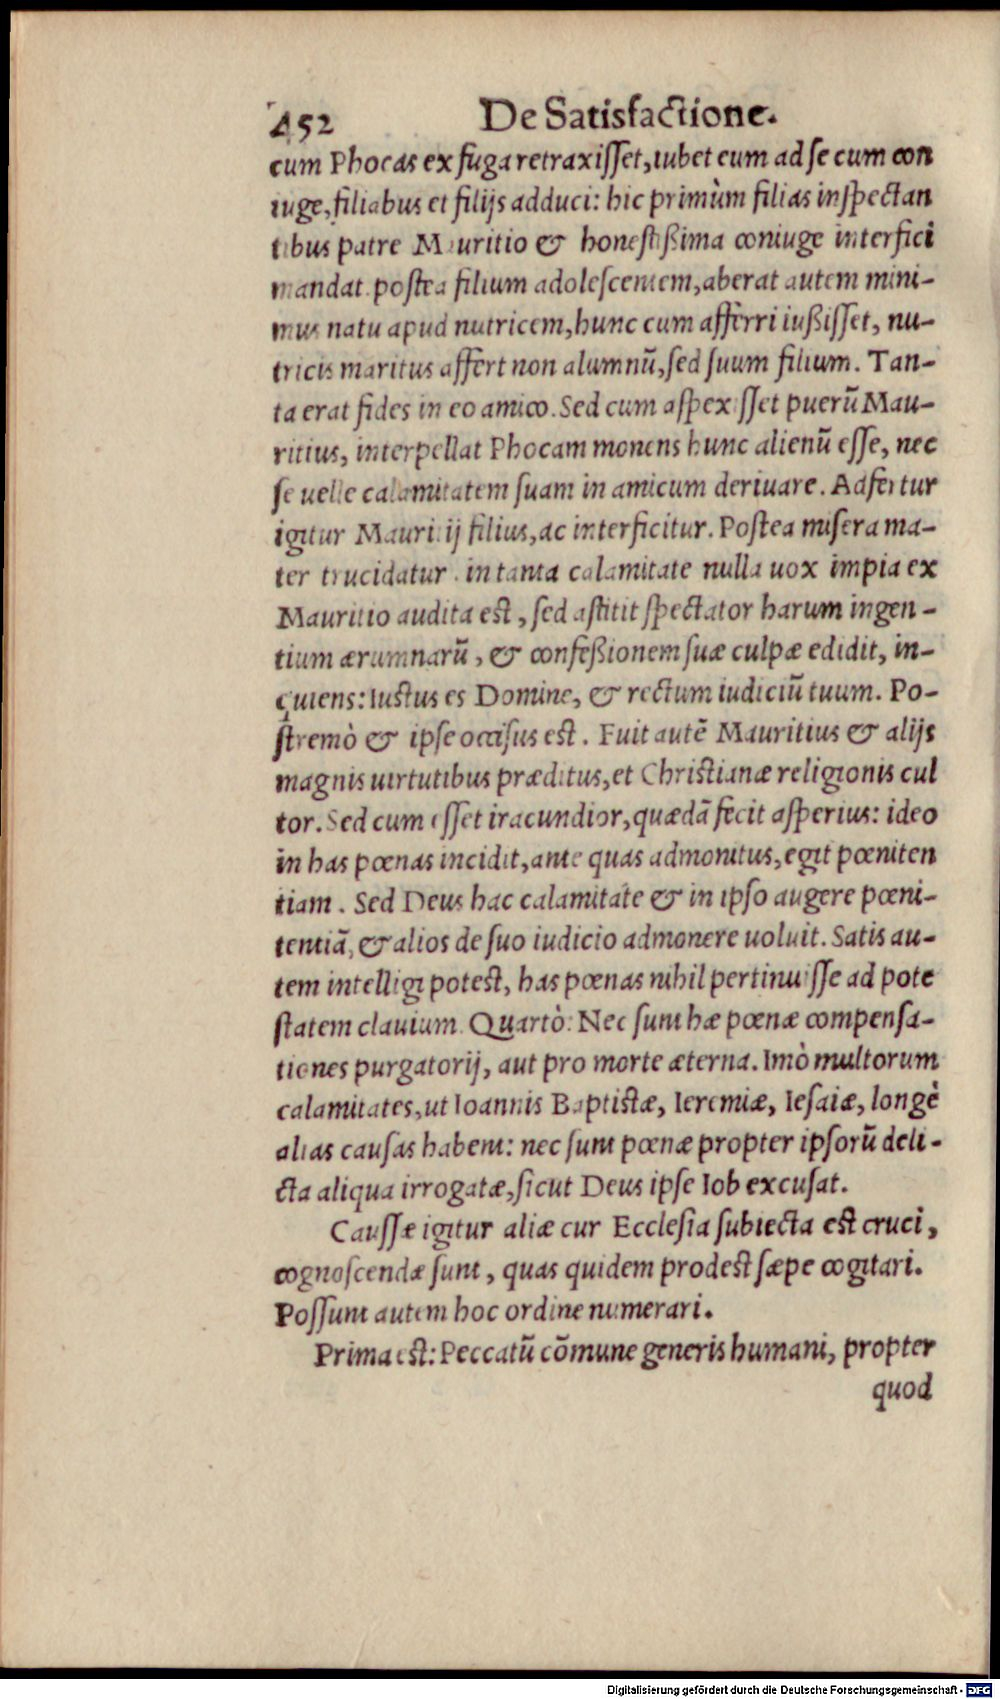 452 De Satisfactione.
cum Phocas ex fuga retraxisset, iubet eum ad se cum con
iuge, filiabus et filijs adduci: hic primùm filias inspectan
tibus patre Mauritio & honestißima coniuge interfici
mandat. postea filium adolescentem, aberat autem mini-
mus natu apud nutricem, hunc cum afferri iußisset, nu-
tricis maritus affert non alumnū, sed suum filium. Tan-
ta erat fides in eo amico. Sed cum aspexisset puerū Mau-
ritius, interpellat Phocam monens hunc alienū esse, nec
se uelle calamitatem suam in amicum deriuare. Adfertur
igitur Mauritij filius, ac interficitur. Postea misera ma-
ter trucidatur. in tanta calamitate nulla uox impia ex
Mauritio audita est, sed astitit spectator harum ingen-
tium ærumnarū, & confeßionem suæ culpæ edidit, in-
quiens: Iustus es Domine, & rectum iudiciū tuum. Po-
stremò & ipse occisus est. Fuit autē Mauritius & alijs
magnis uirtutibus præditus, et Christianæ religionis cul
tor. Sed cum esset iracundior, quædā fecit asperius: ideo
in has pœnas incidit, ante quas admonitus, egit pœniten
tiam. Sed Deus hac calamitate & in ipso augere pœni-
tentiā, & alios de suo iudicio admonere uoluit. Satis au-
tem intelligi potest, has pœnas nihil pertinuisse ad pote
statem clauium. Quartò: Nec sunt hæ pœnæ compensa-
tiones purgatorij, aut pro morte æterna. Imò multorum
calamitates, ut Ioannis Baptistæ, Ieremiæ, Iesaiæ, longè
alias causas habent: nec sunt pœnæ propter ipsorū deli-
cta aliqua irrogatæ, sicut Deus ipse Iob excusat.
Caussæ igitur aliæ cur Ecclesia subiecta est cruci,
cognoscendæ sunt, quas quidem prodest sæpe cogitari.
Possunt autem hoc ordine numerari.
Prima est: Peccatū cōmune generis humani, propter
quod
Digitalisierung gefördert durch die Deutsche Forschungsgemeinschaft - DFG